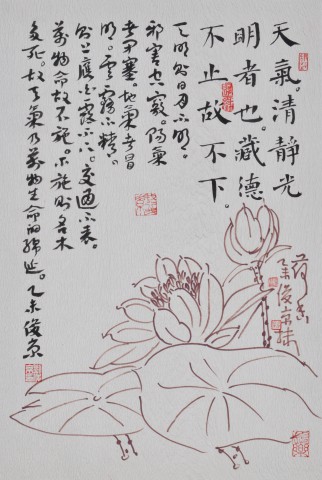 天氣。清靜光
明者也。藏德
不止故不下。
天明則日月不明。
邪害空竅。陽氣
者閉塞。地氣者冒
明。雲霧不精。
則上應白露不下。交通不表。
萬物命故不施。不施則名木
多死。故天氣乃萬物生命的綿延。乙未俊京